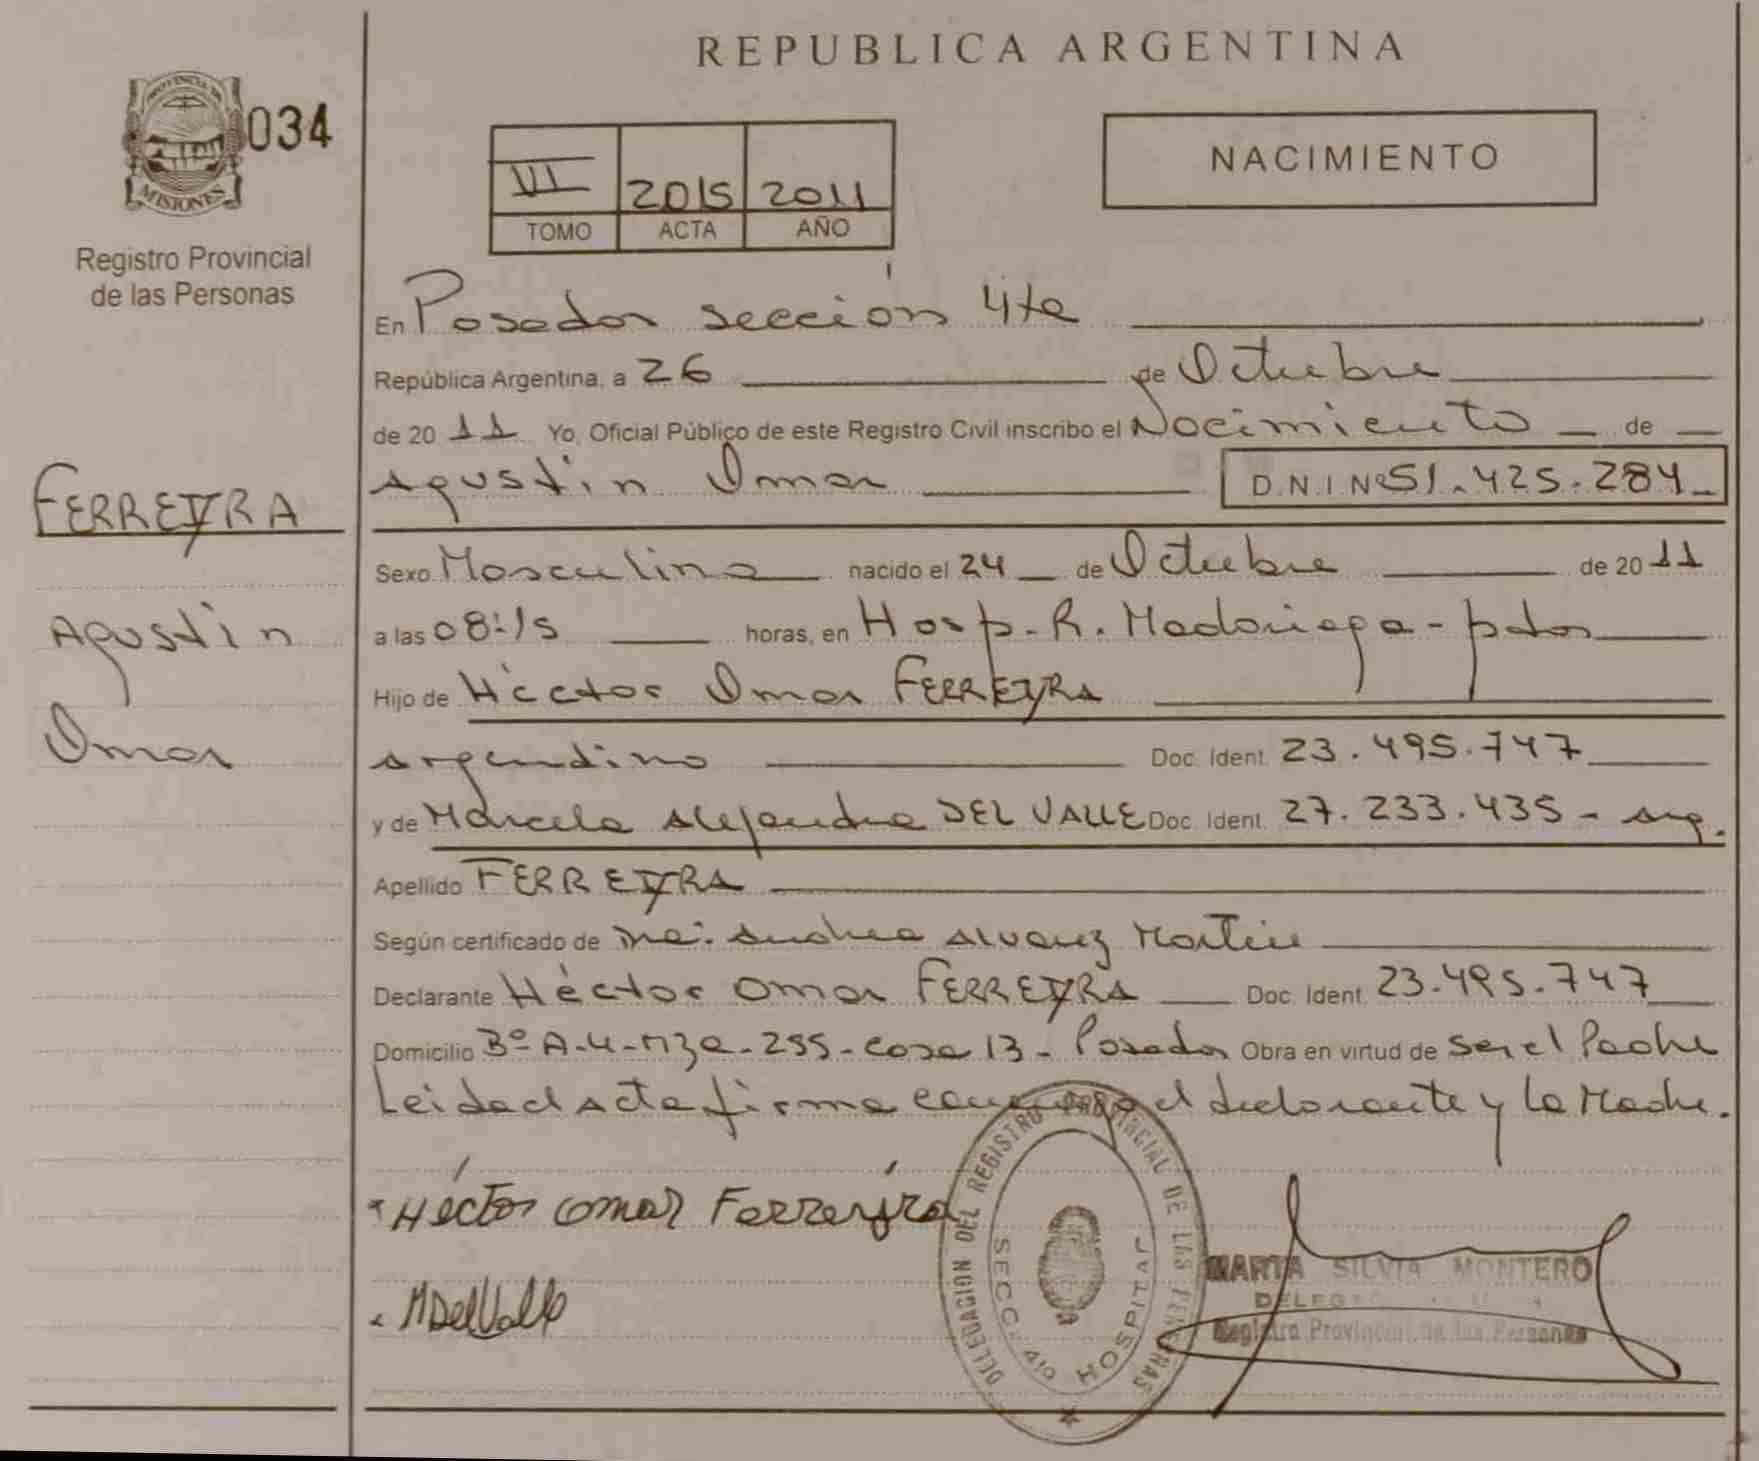 REPUBLICA ARGENTINA
PROVINCIA DE
MISIONES
034
Registro Provincial
de las Personas
VI 2015 2011
TOMO ACTA AÑO
NACIMIENTO
En Posadas sección 4ta
República Argentina, a 26 de Octubre
de 2011 Yo, Oficial Público de este Registro Civil inscribo el Nacimiento de
Agustin Omar D.N.I.Nº 51.425.284
FERREYRA
Agustin
Omar
Sexo Masculino nacido el 24 de Octubre de 2011
a las 08:15 horas, en Hosp. R. Madariaga - pdas
Hijo de Héctor Omar FERREYRA
argentino Doc. Ident. 23.495.747
y de Marcela Alejandra DEL VALLE Doc. Ident. 27.233.435 - arg.
Apellido FERREYRA
Según certificado de Andrea Alvarez Martin
Declarante Héctor Omar FERREYRA Doc. Ident. 23.495.747
Domicilio Bº A-4-Mza-255-Casa 13- Posadas Obra en virtud de ser el Padre
Leida el Acta firma conmigo el declarante y la Madre.
Héctor Omar Ferreyra
MDelValle
DELEGACION DEL REGISTRO PROVINCIAL DE LAS PERSONAS
SECC. 4ta HOSPITAL
MARTA SILVIA MONTERO
Registro Provincial de las Personas